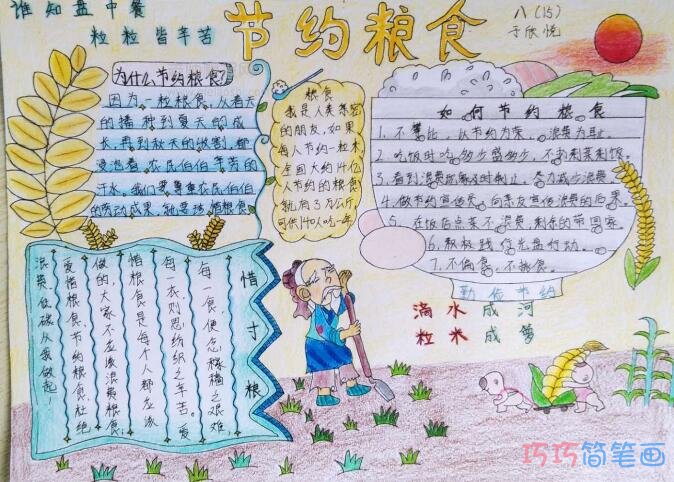 谁知盘中餐
粒粒皆辛苦
节约粮食
八(15)
于欣悦
为什么节约粮食?
因为,一粒粮食,从春天
的播种到夏天的成
长,再到秋天的收割,都
浸泡着农民伯伯辛苦的
汗水,我们要尊重农民伯伯
的劳动成果,就要珍惜粮食。
粮食
我是人类亲密
的朋友,如果
每人节约一粒米
全国大约14亿
人节约的粮食
就有3万公斤,
可供140人吃一年
如何节约粮食
1.不攀比,以节约为荣,浪费为耻。
2.吃饭时吃多少盛多少,不扔剩菜剩饭。
3.看到浪费现象及时制止,尽力减少浪费。
4.做节约宣传员,向亲友宣传浪费的后果。
5.在饭店点菜不浪费,剩余的带回家。
6.积极践行光盘行动。
7.不偏食,不挑食。
勤俭节约
滴水成河
粒米成箩
惜寸粮
每一食,便念稼穑之艰难,
每一衣,则思纺织之辛苦。爱
惜粮食是每个人都应该
做的,大家不应该浪费粮食,
爱惜粮食,节约粮食,杜绝
浪费,低碳从我做起!
巧巧简笔画